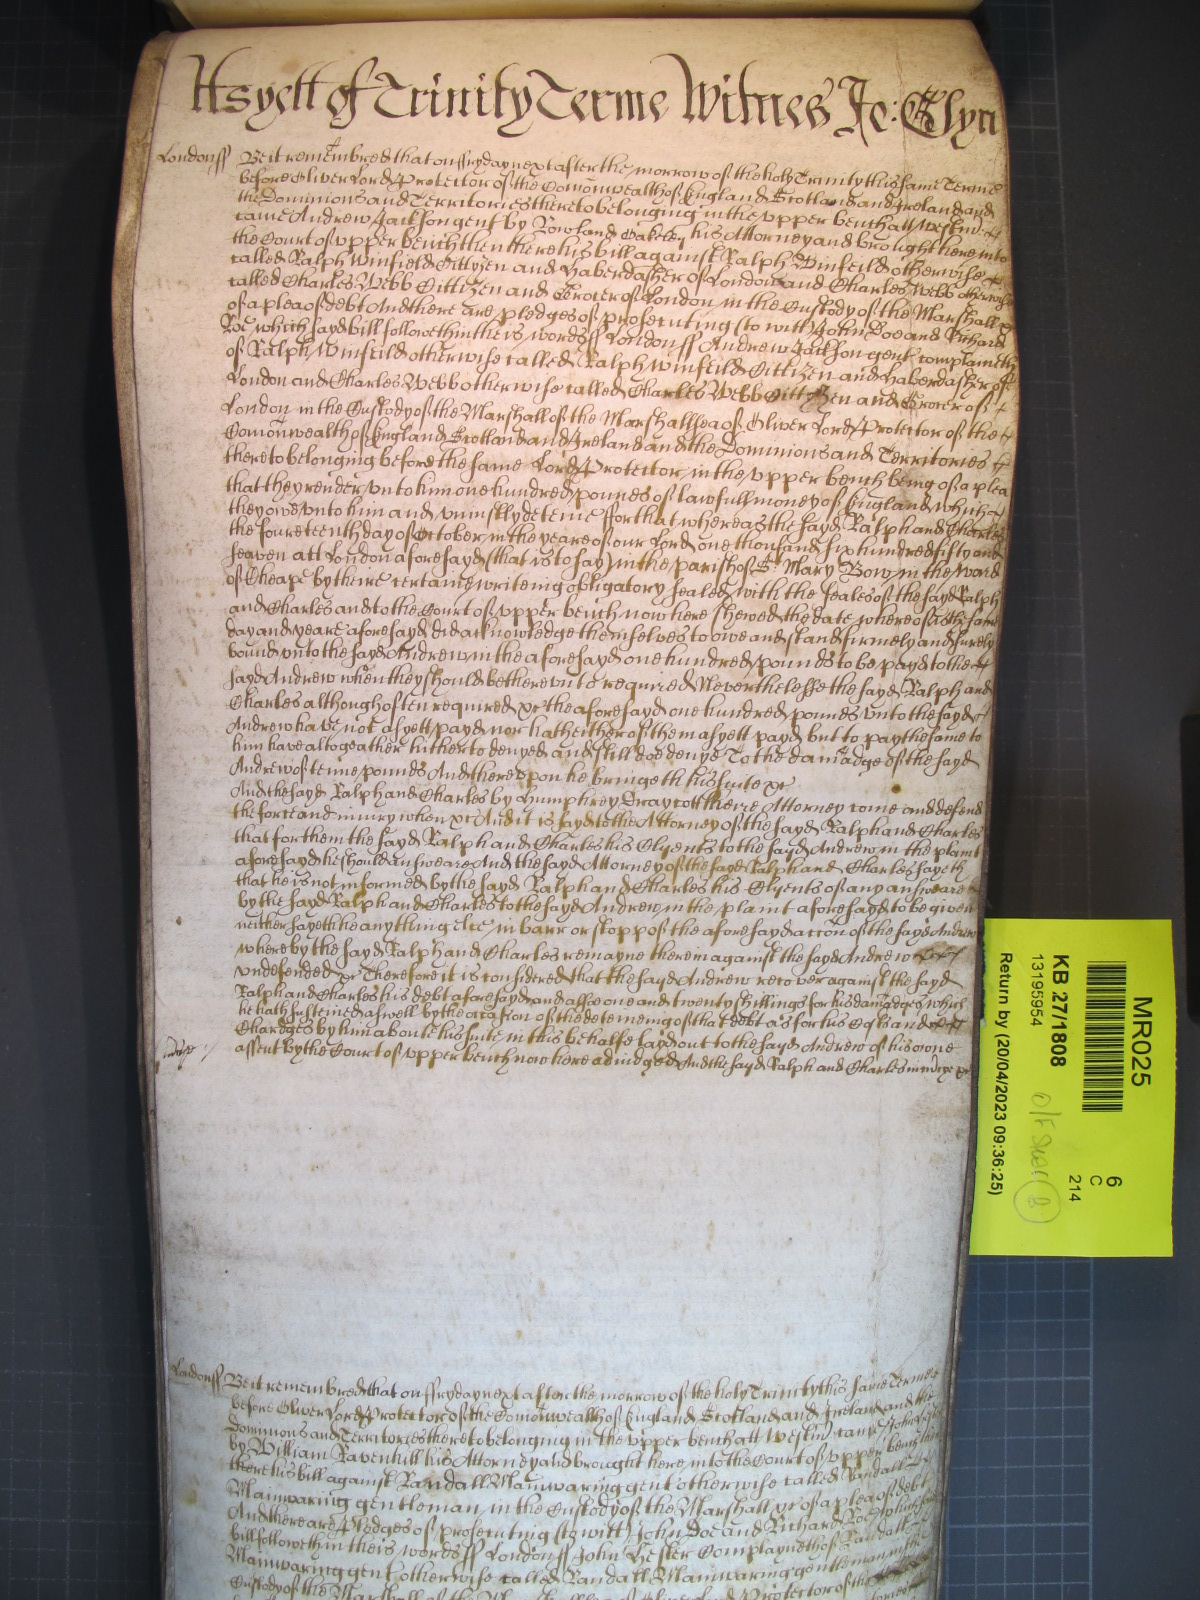 As yett of Trinity Terme Witnes Jo: Glyn
Londonss Be it remembred that on ffryday next after the morrow of the holy Trinity this same Terme
before Oliver Lord Protector of the Comonwealth of England Scotland and Ireland and
the Dominions and Territories thereto belonging in the upper bench att Westmr
came Andrew Jackson gent by Rowland Oakeley his Attorney and brought here into
the Court of upper bench then there his bill against Ralph Winfeild otherwise
called Ralph Winfeild Cittizen and Haberdasher of London and Charles Webb otherwise
called Charles Webb Cittizen and Grocer of London in the Custody of the Marshall &c
of a plea of debt And there are pledges of prosecuting (to witt) John Doe and Richard
Roe which sayd bill followeth in theis words ss Londonss Andrew Jackson gent complaineth
of Ralph Winfeild otherwise called Ralph Winfeild Cittizen and Haberdasher of
London and Charles Webb otherwise called Charles Webb Cittizen and Grocer of
London in the Custody of the Marshall of the Marshallsea of Oliver Lord Protector of the
Comonwealth of England Scotland and Ireland and the Dominions and Territories
thereto belonging before the same Lord Protector in the upper bench being of a plea
that they render unto him one hundred pounes of lawfull money of England which
they owe unto him and uniustly deteine ffor that whereas the sayd Ralph and Charles
the fourteenth day of October in the yeare of our Lord one thousand six hundred fifty and
seaven att London aforesayd (that is to say) in the parish of St Mary Bow in the Ward
of Cheape by theire certaine writeing obligatory sealed with the seales of the sayd Ralph
and Charles and to the Court of upper bench now here shewed the date whereof is the same
day and yeare aforesayd did acknowledge themselves to owe and stand firmely and surely
bound unto the sayd Andrew in the aforesayd one hundred pounds to be payd to the
sayd Andrew when they should be thereunto required Neverthelesse the sayd Ralph and
Charles although often required &c the aforesayd one hundred pounds unto the sayd
Andrew have not as yett payd nor hath either of them as yett payd but to pay the same to
him have altogeather hitherto denyed and still doe denye To the damadge of the sayd
Andrew of tenne pounds And thereupon he bringeth his suite &c
And the sayd Ralph and Charles by Humphrey Draycott theire Attorney come and defend
the force and iniury when &c And it is sayd to the Attorney of the sayd Ralph and Charles
that for them the sayd Ralph and Charles his Clyents to the sayd Andrew in the plaint
aforesayd he should answeare And the sayd Attorney of the sayd Ralph and Charles sayeth
that he is not informed by the sayd Ralph and Charles his Clyents of any answeare
by the sayd Ralph and Charles to the sayd Andrew in the plaint aforesayd to be given
neither sayeth he any thing else in barr or stopp of the aforesayd accon of the sayd Andrew
whereby the sayd Ralph and Charles remayne therein against the sayd Andrew
undefended &c Therefore it is considered that the sayd Andrew recover against the sayd
Ralph and Charles his debt aforesayd and allsoe one and twenty shillings for his damadges which
he hath susteined aswell by the occasion of the deteineing of that debt as for his Costs and
Chardges by him about his suite in this behalfe layd out to the sayd Andrew of his owne
assent by the Court of upper bench now here adiudged And the sayd Ralph and Charles in mercye &c
mercye
Londonss Be it remembred that on ffryday next after the morrow of the holy Trinity this same Terme
before Oliver Lord Protector of the Comonwealth of England Scotland and Ireland and the
Dominions and Territories thereto belonging in the upper bench att Westmr came John Lester
by William Ravenhill his Attorney and brought here into the Court of upper bench then
there his bill against Randall Mainwaring gent otherwise called Randall
Mainwaring gentleman in the Custody of the Marshall &c of a plea of debt
And there are pledges of prosecuting (to witt) John Doe and Richard Roe which sayd
bill followeth in theis words ss Londonss John Lester Complayneth of Randall
Mainwaring gent otherwise called Randall Mainwaring gentleman in the
Custody of the Marshall of the Marshallsea of Oliver Lord Protector of the
MR025
6
C
214
KB 27/1808
13195954
Return by (20/04/2023 09:36:25)